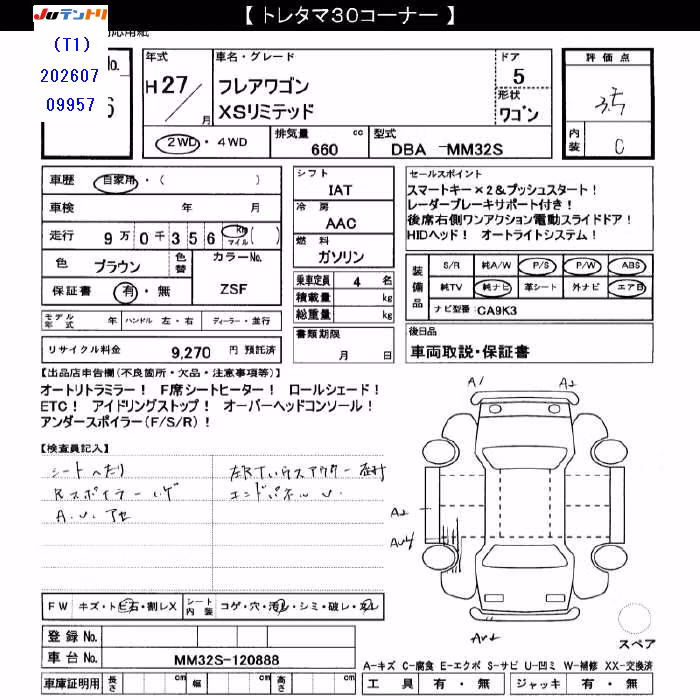 【 トレタマ30コーナー 】
Juテントリ
(T1)
202607
09957
応用紙
No.
6
年式
H 27 / 月
車名・グレード
フレアワゴン
XSリミテッド
ドア
5
形状
ワゴン
評価点
3.5
内装
C
2WD・4WD
排気量 cc
660
型式
DBA -MM32S
車歴 自家用・( )
車検 年 月
走行 9万0千356 km マイル ( )
色 ブラウン 色替 カラーNo.
保証書 有・無 ZSF
モデル年式 年 ハンドル 左・右 ディーラー・並行
リサイクル料金 9,270 円 預託済
シフト
IAT
冷房
AAC
燃料
ガソリン
乗車定員 4 名
積載量 kg
総重量 kg
書類期限
月 日
セールスポイント
スマートキー×2&プッシュスタート!
レーダーブレーキサポート付き!
後席右側ワンアクション電動スライドドア!
HIDヘッド! オートライトシステム!
装備品
S/R 純A/W P/S P/W ABS
純TV 純ナビ 革シート 外ナビ エアB
ナビ型番 CA9K3
後日品
車両取説・保証書
【出品店申告欄(不良箇所・欠品・注意事項等)】
オートリトラミラー! F席シートヒーター! ロールシェード!
ETC! アイドリングストップ! オーバーヘッドコンソール!
アンダースポイラー(F/S/R)!
【検査員記入】
シートヘたり
Rスポイラーハゲ エンドパネルU.
A.U.アセ
A1 A2
A2
AU4
AU2
FW キズ・トビ石・割レX シート内装 コゲ・穴・汚レ・シミ・破レ・スレ
登録No.
車台No. MM32S-120888
車庫証明用 長さ cm 幅 cm 高さ cm
スペア
A-キズ C-腐食 E-エクボ S-サビ U-凹ミ W-補修 XX-交換済
工具 有・無 ジャッキ 有・無